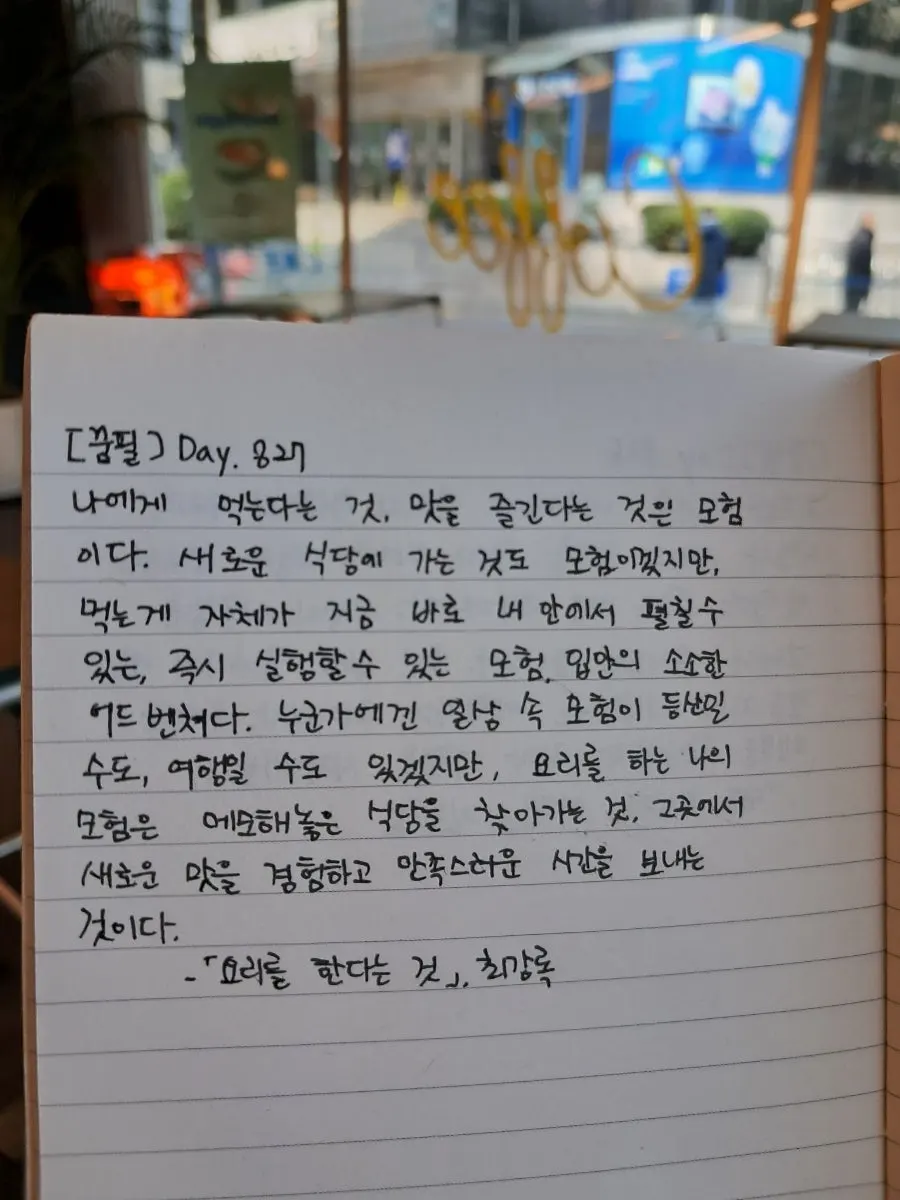 Coffee
[꿈필] Day. 827
나에게 먹는다는 것, 맛을 즐긴다는 것은 모험
이다. 새로운 식당에 가는 것도 모험이겠지만,
먹는게 자체가 지금 바로 내 안에서 펼칠 수
있는, 즉시 실행할 수 있는 모험, 입안의 소소한
어드벤처다. 누군가에겐 일상 속 모험이 등산일
수도, 여행일 수도 있겠지만, 요리를 하는 나의
모험은 메모해놓은 식당을 찾아가는 것, 그곳에서
새로운 맛을 경험하고 만족스러운 시간을 보내는
것이다.
-「요리를 한다는 것」, 최강록